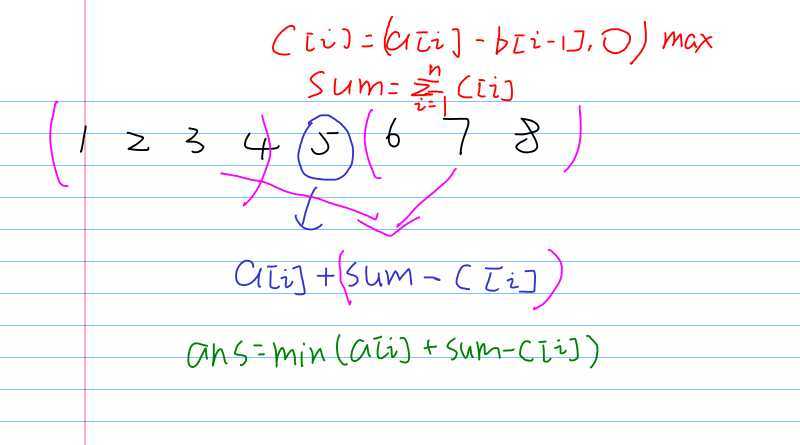 C[i]=(a[i]-b[i-1],0) max
sum=∑_{i=1}^{n} C[i]
(1 2 3 4) 5 (6 7 8)
a[i]+(sum-C[i])
ans=min(a[i]+sum-C[i])